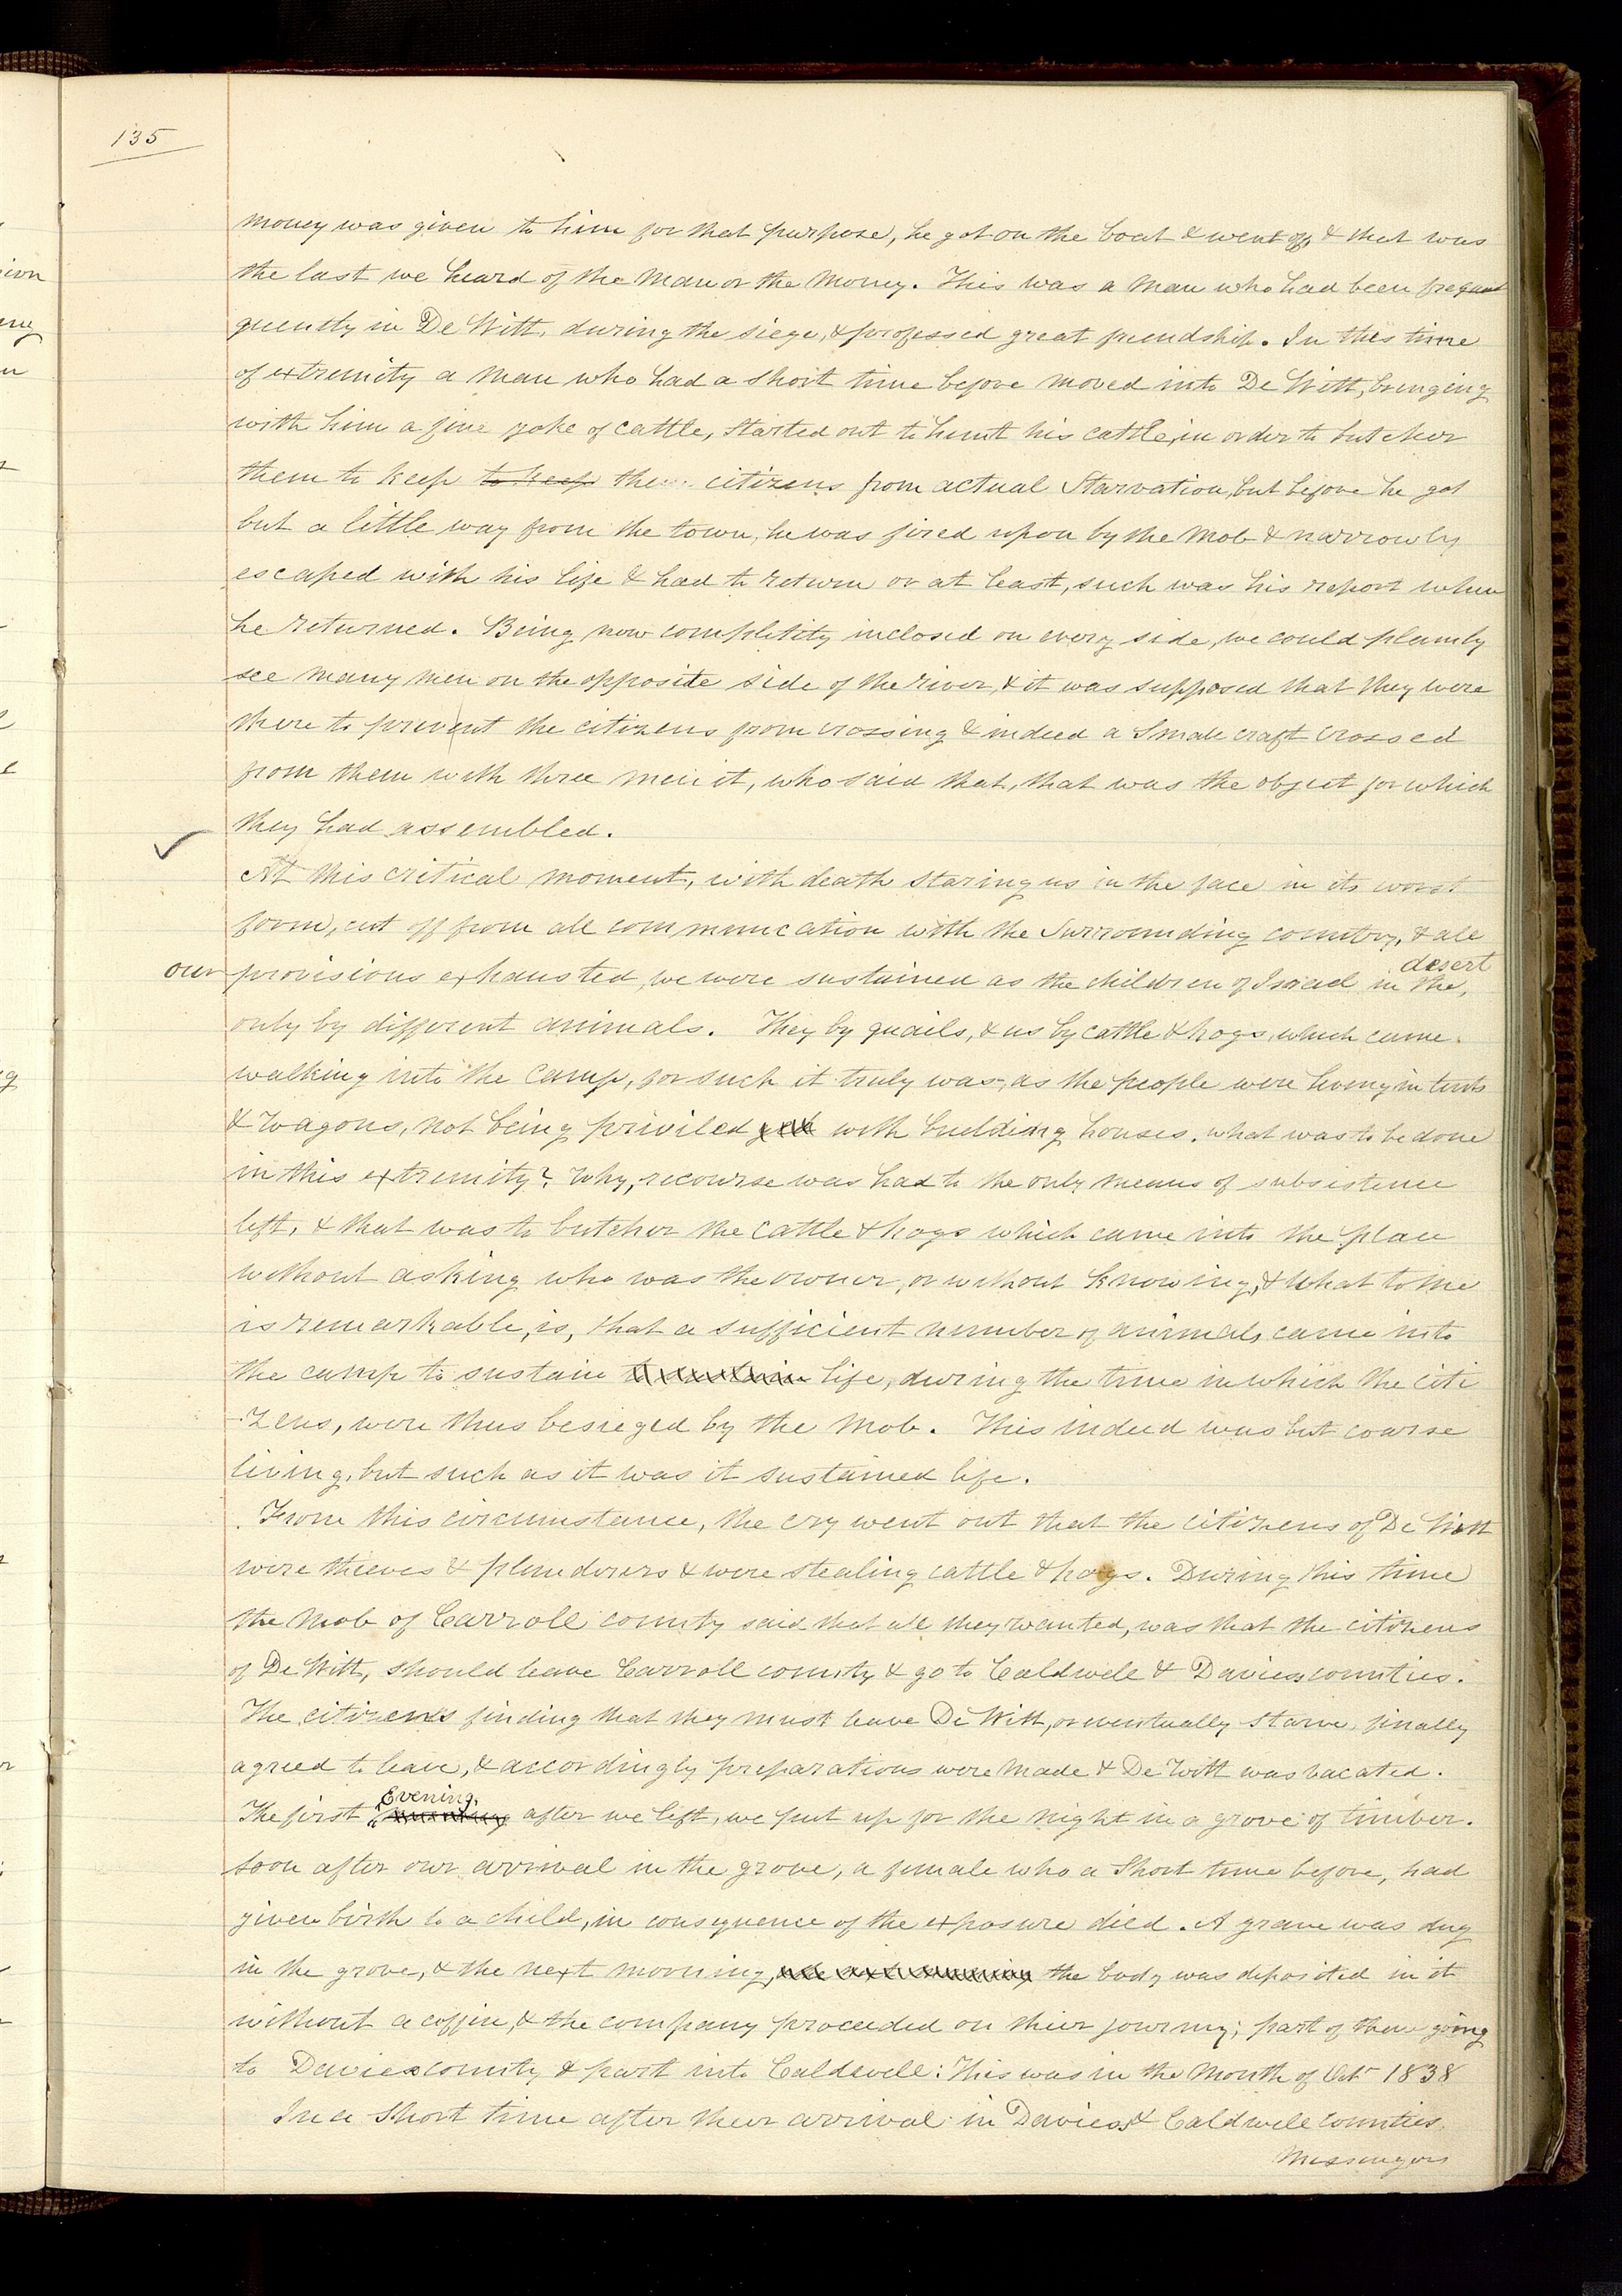 135
money was given to him for that purpose, he got on the boat & went off, & that was
the last we heard of the man or the money. This was a man who had been frequent
quently in De Witt, during the siege, & professed great friendship. In this time
of extremity a man who had a short time before moved into De Witt, bringing
with him a fine yoke of cattle, started out to hunt his cattle, in order to butcher
them to keep to keep the citizens from actual Starvation, but before he got
but a little way from the town, he was fired upon by the Mob & narrowly
escaped with his life & had to return or at least, such was his report when
he returned. Being now completity inclosed on every side, we could plainly
see many men on the opposite side of the river, & it was supposed that they were
there to prevent the citizens from crossing & indeed a Small craft crossed
from them with three men it, who said that, that was the object for which
they had assembled.
At this critical moment, with death staring us in the face in its worst
form, cut off from all communication with the Surrounding country, & all
desert
our provisions exhausted, we were sustained as the children of Israel in the,
only by different animals. They by quails, & us by cattle & hogs, which came
walking into the camp, for such it truly was, as the people were living in tents
& wagons, not being priviled with building houses. what was to be done
in this extremity? Why, recourse was had to the only means of subsistence
left, & that was to butcher the cattle & hogs which came into the place
without asking who was the owner, or without knowing, & what to me
is remarkable, is, that a sufficient number of animals came into
the camp to sustain to sustain life, during the time in which the citi
-zens, were thus besieged by the mob. This indeed was but coarse
living, but such as it was it sustained life.
From this circumstance, the cry went out that the citizens of De Witt
were thieves & plunderers & were stealing cattle & hogs. During this time
the Mob of Carroll county said that all they wanted, was that the citizens
of De Witt, should leave Carroll county & go to Caldwell & Daviess counties.
The citizens finding that they must leave De Witt, or eventually starve, finally
agreed to leave, & accordingly preparations were made & De Witt was vacated.
Evening,
The first morning after we left, we put up for the night in a grove of timber.
soon after our arrival in the grove, a female who a Short time before, had
given birth to a child, in consequence of the exposure died. A grave was dug
in the grove, & the next morning, the body was deposited in it
without a coffin, & the company proceeded on thier journey; part of them going
to Daviess county & part into Caldwell: This was in the Month of Oct. 1838
In a Short time after their arrival in Daviess & Caldwell counties,
Messengers